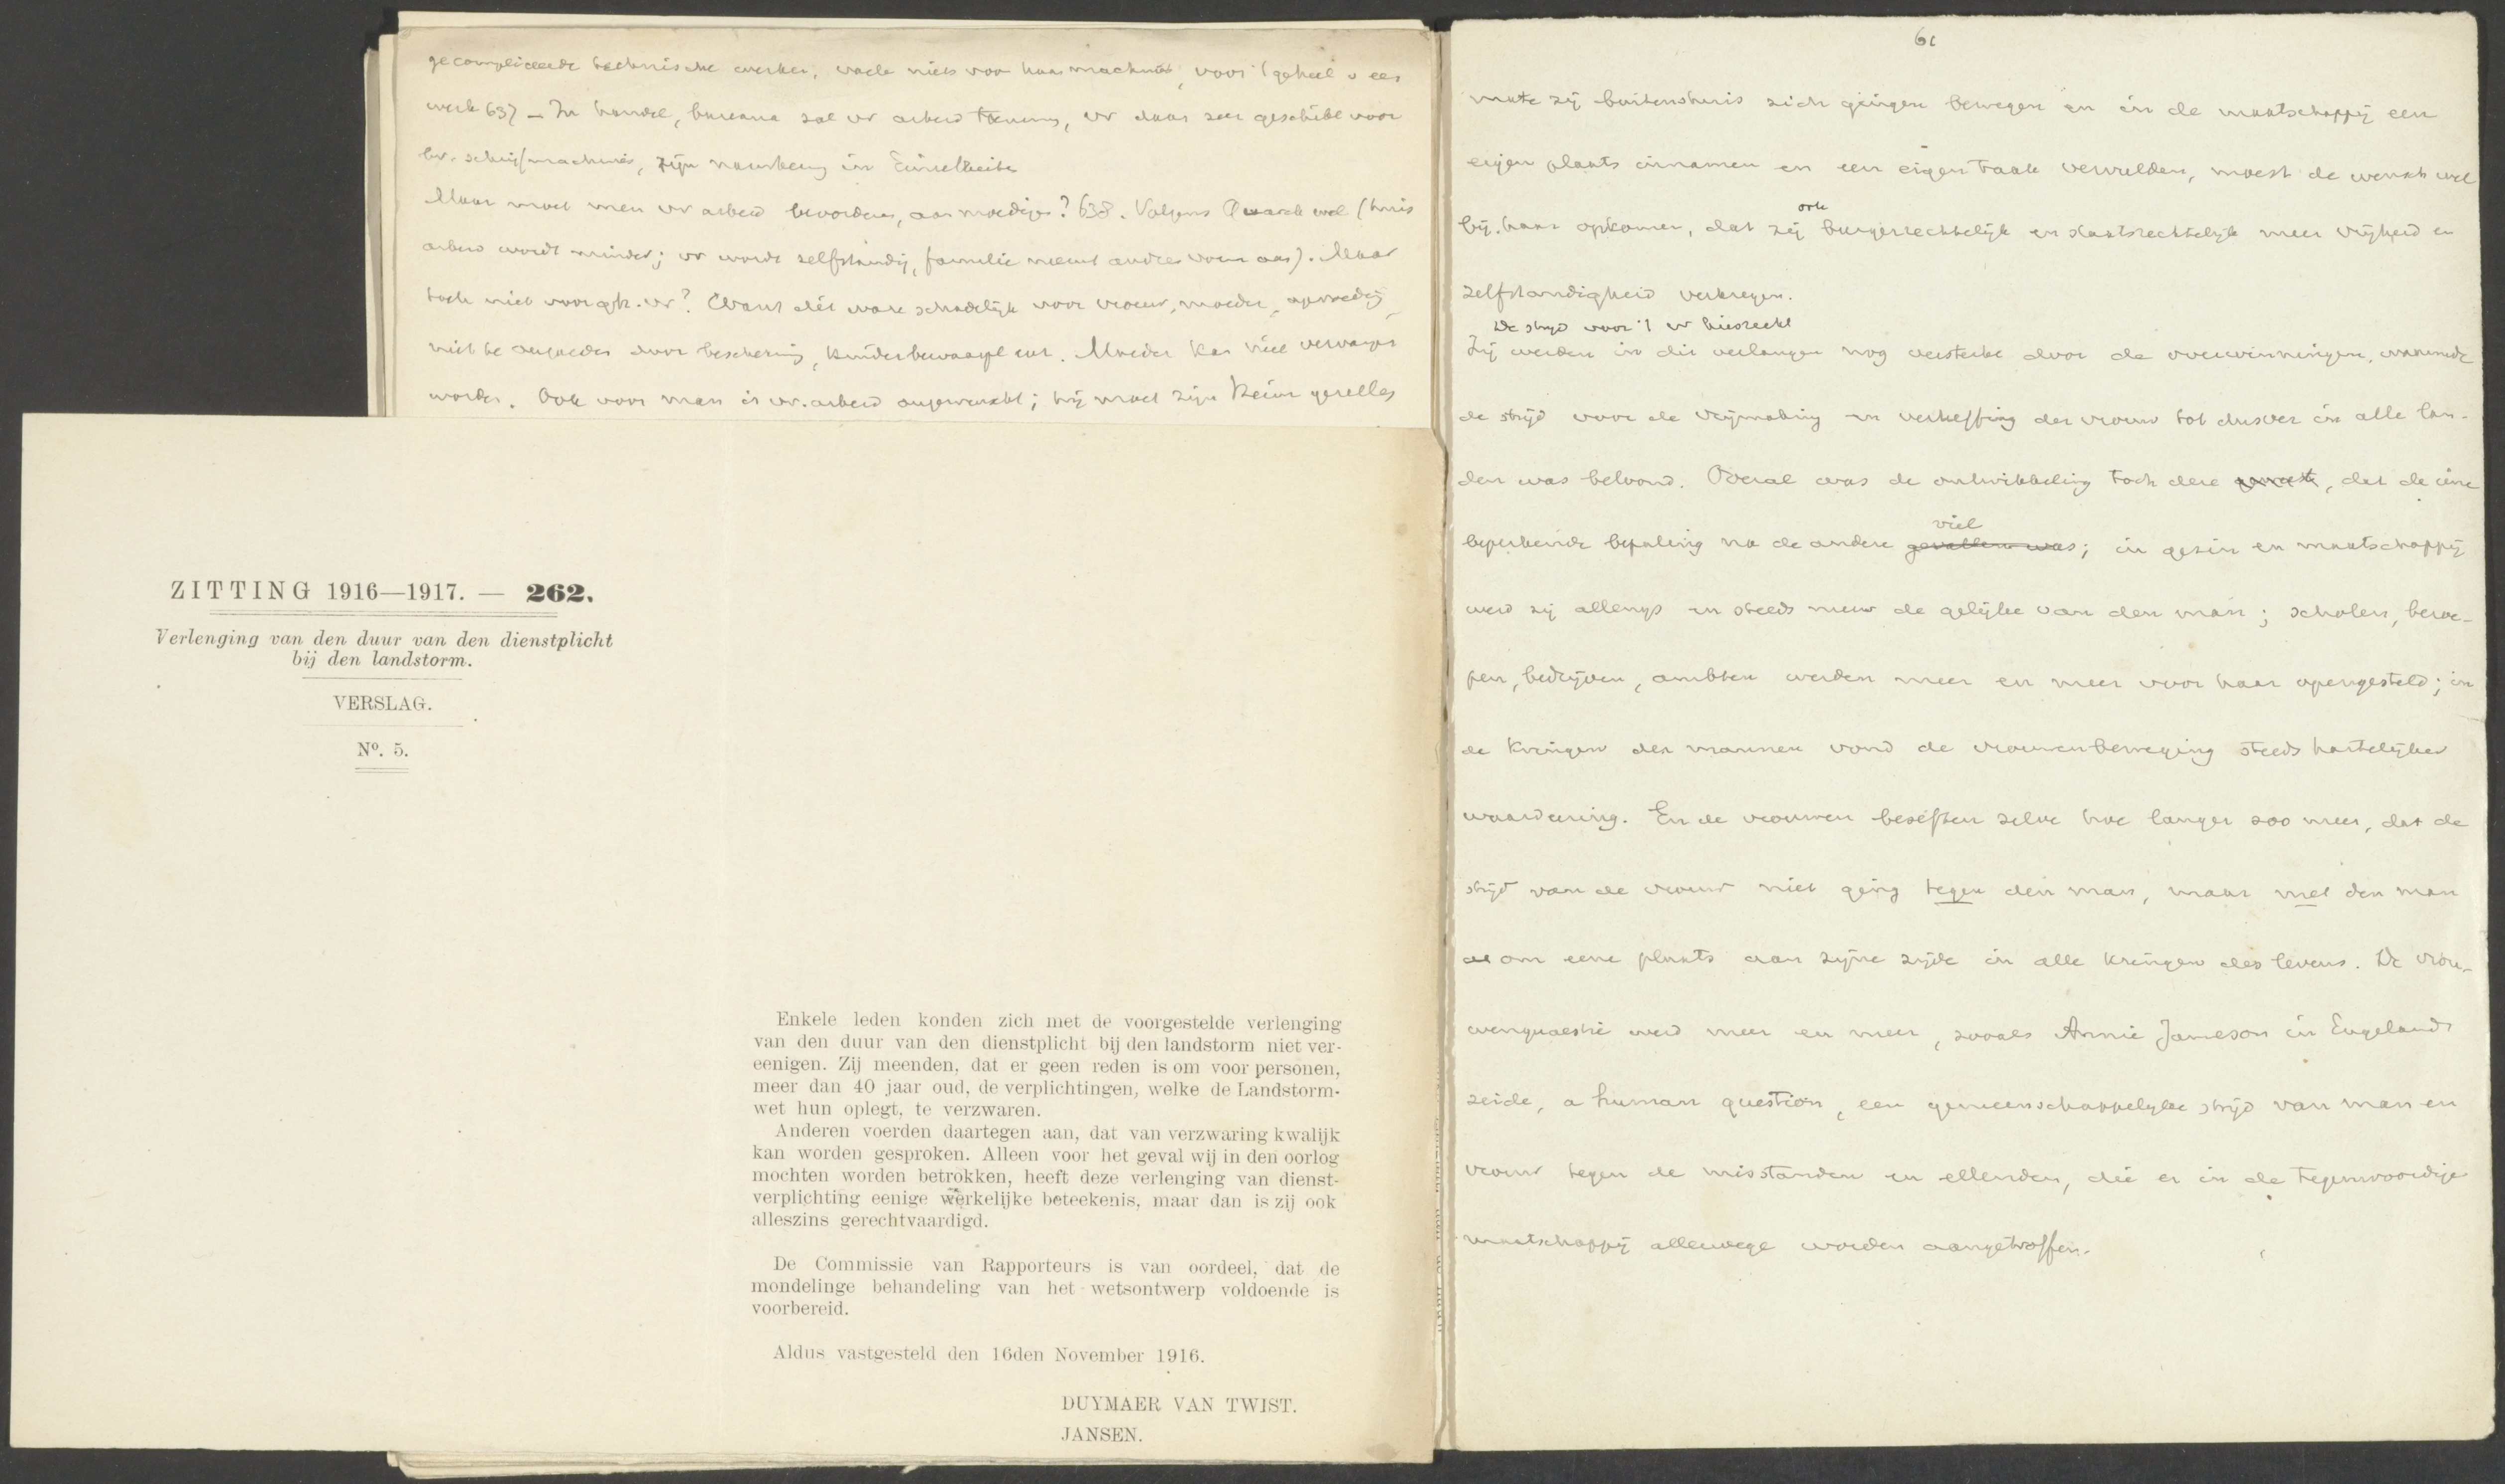 gecompliceerde technische werken, vaak niets voor haar machines, voor 't geheel v een
werk 637 — In handel, bureaux zal vr arbeid toenemen, vr daar zeer geschikt voor
bv. schrijfmachines, zijn nauwkeurig in Einzelheiten
Maar moet men vr arbeid bevorderen, aanmoedigen? 638. Volgens Quarck wel (huis
arbeid wordt minder; vr wordt zelfstandig, familie neemt andere vorm aan). Maar
toch niet voor geh. vr? Want dit ware schadelijk voor vrouw, moeder, opvoeding,
niet te vergoeden door bescherming, kinderbewaarpl enz. Moeder kan niet vervangen
worden. Ook voor man is vr. arbeid ongewenscht; hij moet zijn Heim
ZITTING 1916—1917. — 262.
Verlenging van den duur van den dienstplicht
bij den landstorm.
VERSLAG.
No. 5.
Enkele leden konden zich met de voorgestelde verlenging
van den duur van den dienstplicht bij den landstorm niet ver-
eenigen. Zij meenden, dat er geen reden is om voor personen,
meer dan 40 jaar oud, de verplichtingen, welke de Landstorm-
wet hun oplegt, te verzwaren.
Anderen voerden daartegen aan, dat van verzwaring kwalijk
kan worden gesproken. Alleen voor het geval wij in den oorlog
mochten worden betrokken, heeft deze verlenging van dienst-
verplichting eenige werkelijke beteekenis, maar dan is zij ook
alleszins gerechtvaardigd.
De Commissie van Rapporteurs is van oordeel, dat de
mondelinge behandeling van het wetsontwerp voldoende is
voorbereid.
Aldus vastgesteld den 16den November 1916.
DUYMAER VAN TWIST.
JANSEN.
61
mate zij buitenshuis zich gingen bewegen en in de maatschappij een
eigen plaats innamen en een eigen taak vervulden, moest de wensch wel
ook
bij haar opkomen, dat zij burgerrechtelijk en staatsrechtelijk meer vrijheid en
zelfstandigheid verkregen.
De strijd voor 't vr kiesrecht
Zij werden in dit verlangen nog versterkt door de overwinningen, waarmede
de strijd voor de vrijmaking en verheffing der vrouw tot dusver in alle lan-
den was beloond. Overal was de ontwikkeling toch deze geweest, dat de eene
viel
beperkende bepaling na de andere gevallen was; in gezin en maatschappij
werd zij allengs en steeds meer de gelijke van den man; scholen, beroe-
pen, bedrijven, ambten werden meer en meer voor haar opengesteld; in
de kringen der mannen vond de vrouwenbeweging steeds hartelijker
waardeering. En de vrouwen beseften zelve hoe langer zoo meer, dat de
strijd van de vrouw niet ging tegen den man, maar met den man
om eene plaats aan zijne zijde in alle kringen des levens. De vrou-
wenquaestie werd meer en meer, zooals Annie Jameson in Engeland
zeide, a human question, een gemeenschappelijke strijd van man en
vrouw tegen de misstanden en ellenden, die er in de tegenwoordige
maatschappij allerwege worden aangetroffen.